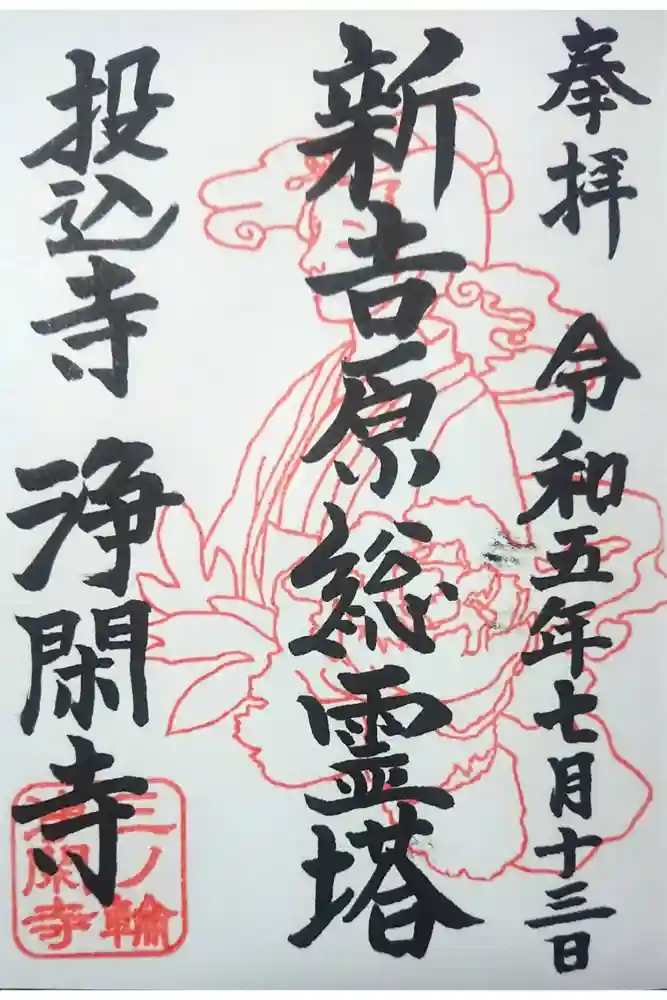 奉拝
令和五年七月十三日
新吉原総霊塔
投込寺 浄閑寺
三ノ輪
浄閑寺